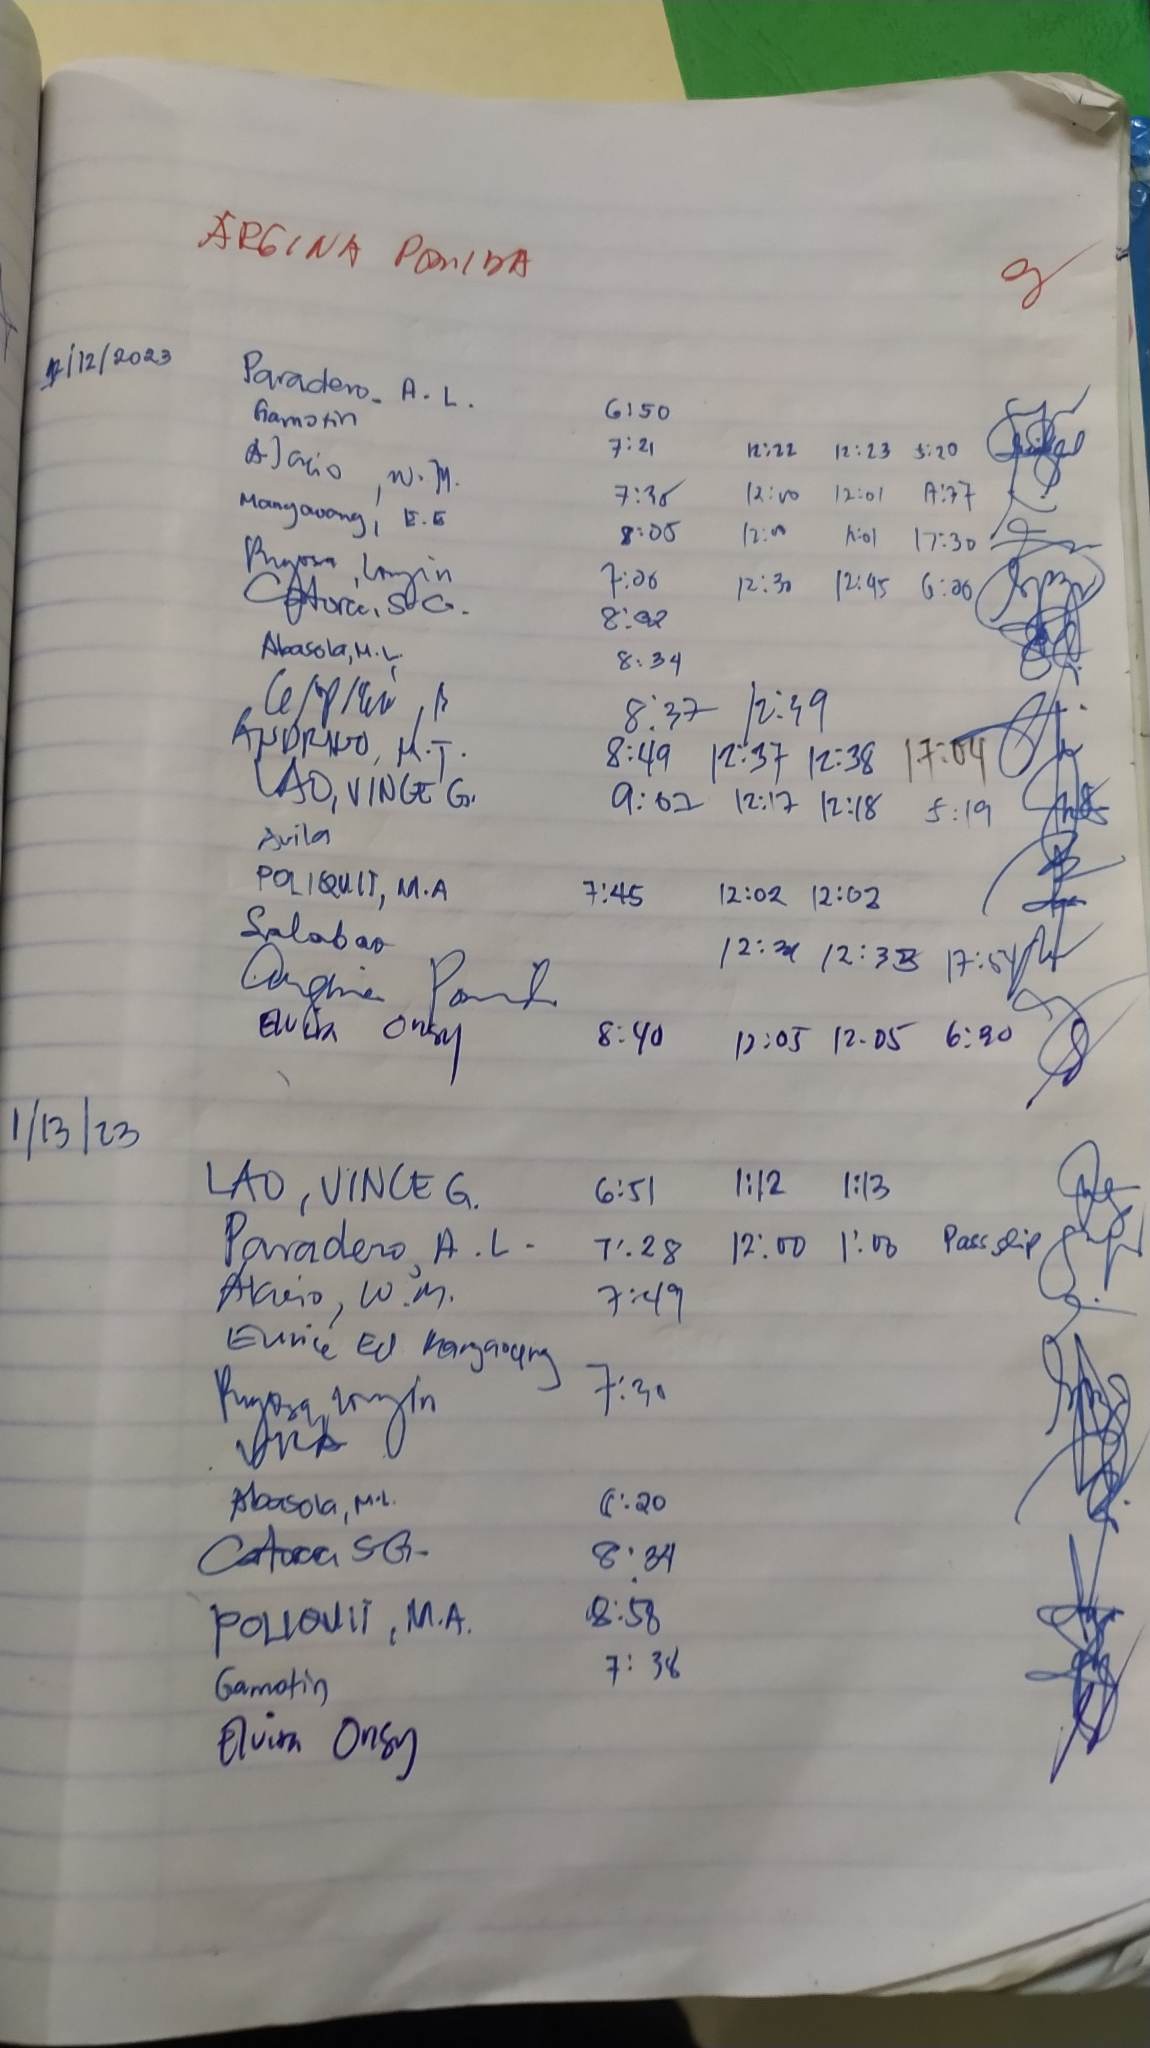 ARGINA PONIDA
1/12/2023
Paradero A. L. 6:50
Gamotin 7:21 12:22 12:23 5:20
Alacio, W. M. 7:35 12:00 12:01
Mangaoang, E. E 8:05 12:00 17:30
7:00 12:30 12:45 6:00
Catorce, S. G.
Abasola, M. L. 8:34
8:37 12:39
ANDRINO, M. T. 8:49 12:37 12:38 17:04
LAO, VINCE G. 9:02 12:17 12:18 5:19
Avila
POLIQUIT, M.A 7:45 12:02 12:02
Salabao 12:33 17:54
Elvira Onsy 8:40 12:05 12:05 6:30
1/13/23
LAO, VINCE G. 6:51 1:12 1:13
Paradero, A. L. 7:28 12:00 1:00 Pass slip
Alacio, W. M. 7:49
Eunice Ed Mangaoang
7:30
Abasola, M.L. 20
Catorce SG. 8:34
POLIQUIT, M.A. 8:58
Gamotin 7:38
Elvira Onsy